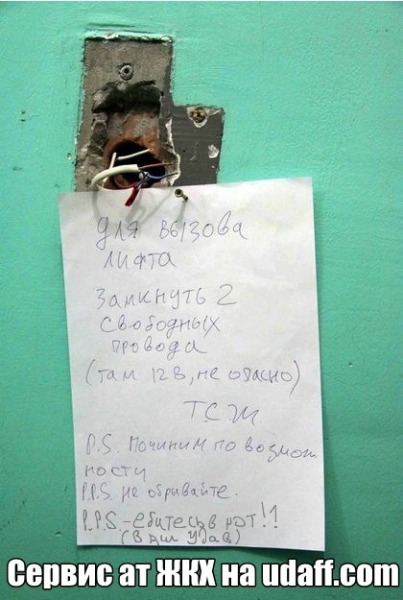 Для вызова
лифта
Замкнуть 2
свободных
провода
(там 12 в, не опасно)
Т.С.Ж
P.S. Починим по возмож
ности
P.P.S. не обрывайте.
P.P.S.-ебитесь в рот!!
(Ваш Удав)
Сервис ат ЖКХ на udaff.com